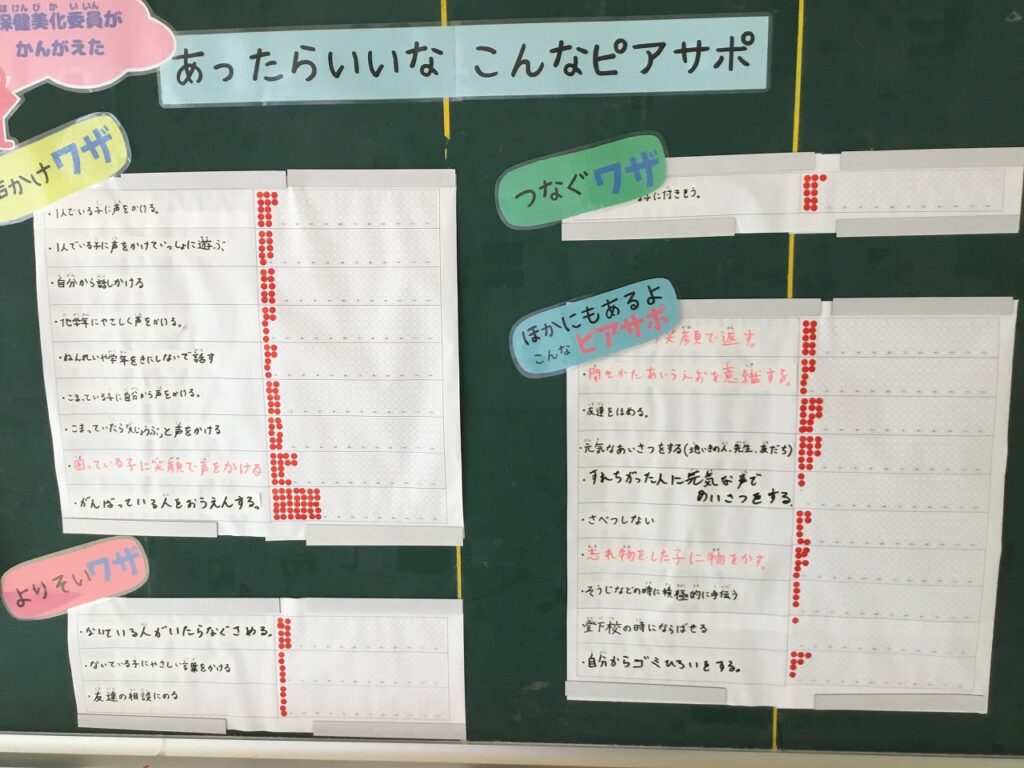 保健美化委員が
かんがえた
あったらいいな こんなピアサポ
かけワザ
・1人でいる子に声をかける。
・1人でいる子に声をかけていっしょに遊ぶ
・自分から話しかける
・他学年にやさしく声をかける。
・ねんれいや学年をきにしないで話す
・こまっている子に自分から声をかける。
・こまっていたら「大じょうぶ」と声をかける
・困っている子に笑顔で声をかける
・がんばっている人をおうえんする。
よりそいワザ
・ないている人がいたらなぐさめる。
・ないている子にやさしい言葉をかける
・友達の相談にのる
つなぐワザ
子に付きそう。
ほかにもあるよ
こんなピアサポ
笑顔で返す。
・聞きかたあいうえおを意識する。
・友達をほめる。
・元気なあいさつをする(地いきの人、先生、友だち)
・すれちがった人に元気な声で
あいさつをする。
・さべつしない
・忘れ物をした子に物をかす。
・そうじなどの時に積極的に手伝う
・登下校の時にならばせる
・自分からゴミひろいをする。